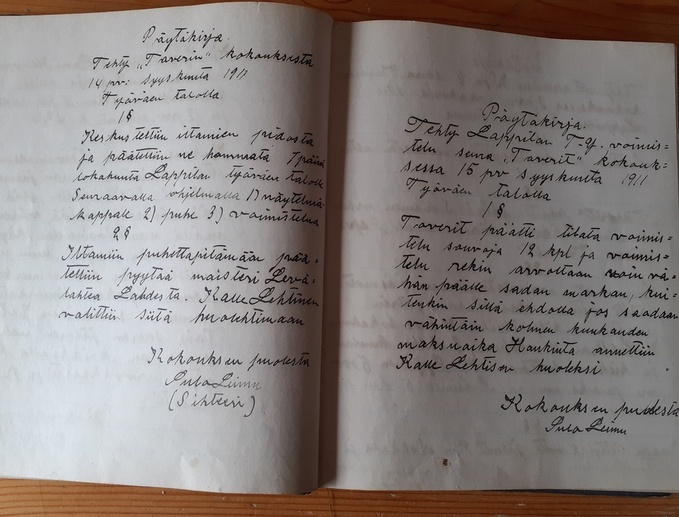 Pöytäkirja.
Tehty "Toverin" kokouksesta
14 pv: syyskuuta 1911
Työväen talolla
1 §
Keskusteltiin iltamien pidosta
ja päätettiin ne hommata 1 päivä
lokakuuta Lappilan työväen talolle
Seuraavalla ohjelmalla 1) näytelmä
kappale 2) puhe 3) voimistelua
2 §
Iltamiin puhetta pitämään pää=
tettiin pyytää maisteri Levä=
lahtea Lahdesta. Kalle Lehtinen
valittiin siitä huolehtimaan
Kokouksen puolesta
Leimu
(Sihteeri)
Pöytäkirja.
Tehty Lappilan T-y. voimis=
telu seura "Toverit" kokouk=
sessa 15 pv syyskuuta 1911
Työväen talolla
1 §
Toverit päätti tilata voimis=
telu sauvoja 12 kpl ja voimis=
telu rekin arvoltaan noin vä=
hän päälle sadan markan, kui=
tenkin sillä ehdolla jos saadaan
vähintäin kolmen kuukauden
maksuaika Hankinta annettiin
Kalle Lehtisen huoleksi
Kokouksen puolesta
Leimu